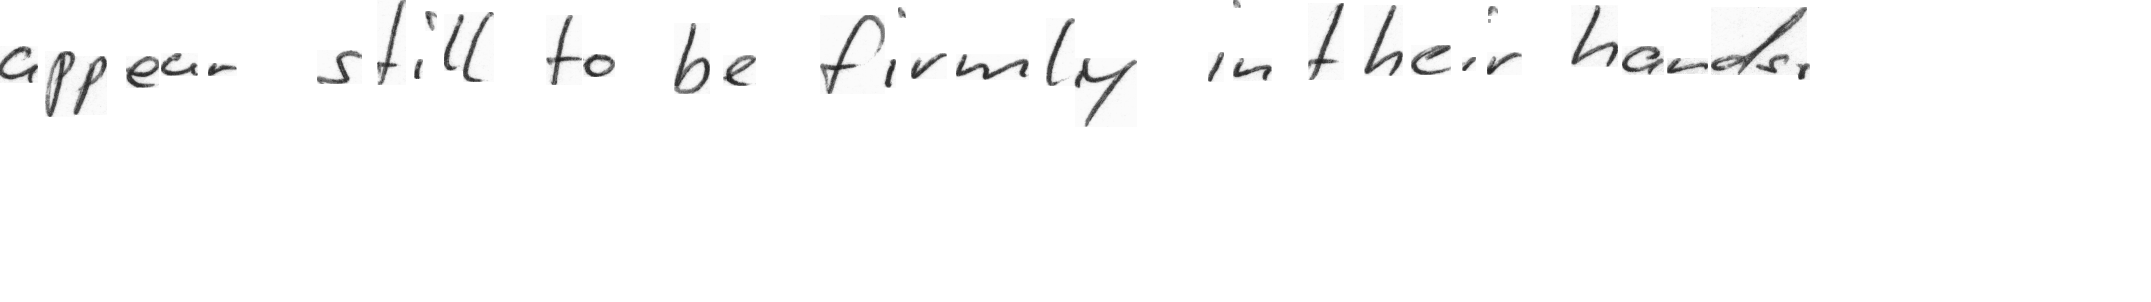 appear still to be firmly in their hands.